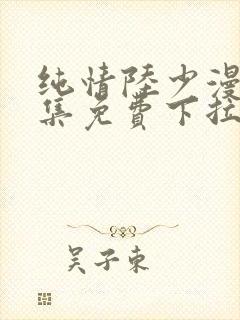 纯情陸少漫
集免費下拉
吴子東